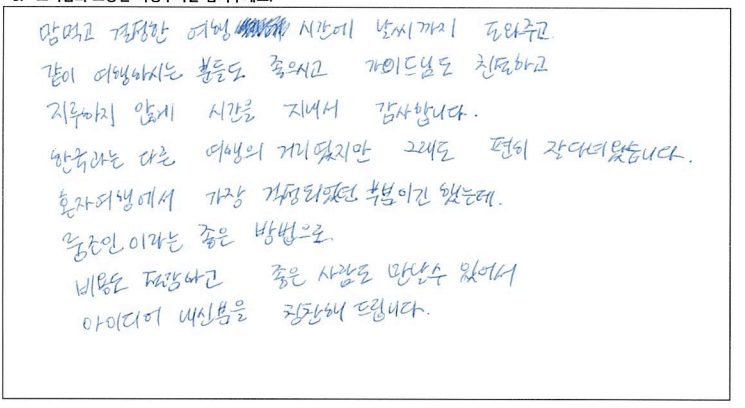 맘먹고 결정한 여행 시간에 날씨까지 도와주고.
같이 여행하시는 분들도 좋으시고 가이드님도 친절하고
지루하지 않게 시간을 지내서 감사합니다.
한국과는 다른 여행의 거리였지만 그래도 편히 잘다녀왔습니다.
혼자여행에서 가장 걱정되었던 부분이긴 했는데.
룸조인 이라는 좋은 방법으로.
비용도 절감하고 좋은 사람도 만날수 있어서
아이디어 내신분을 칭찬해 드립니다.